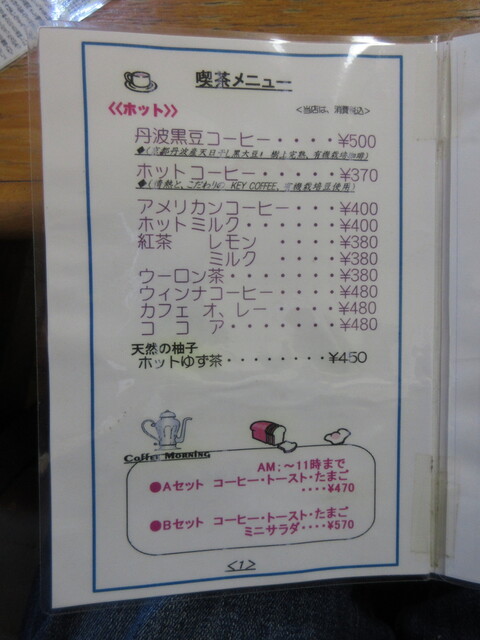 喫茶メニュー
《ホット》
<当店は、消費税込>
丹波黒豆コーヒー・・・・¥500
ホットコーヒー・・・・・¥370
アメリカンコーヒー・・・¥400
ホットミルク・・・・・・¥400
紅茶 レモン ・・・・・¥380
ミルク ・・・・・¥380
ウーロン茶・・・・・・・¥380
ウィンナコーヒー・・・・¥480
カフェ オ、レー・・・・¥480
コ コ ア ・・・・・・¥480
天然の柚子
ホットゆず茶・・・・・・・・¥450
Coffee Morning
AM;~11時まで
●Aセット コーヒー・トースト・たまご
・・・・¥470
●Bセット コーヒー・トースト・たまご
ミニサラダ・・・・¥570
<1>